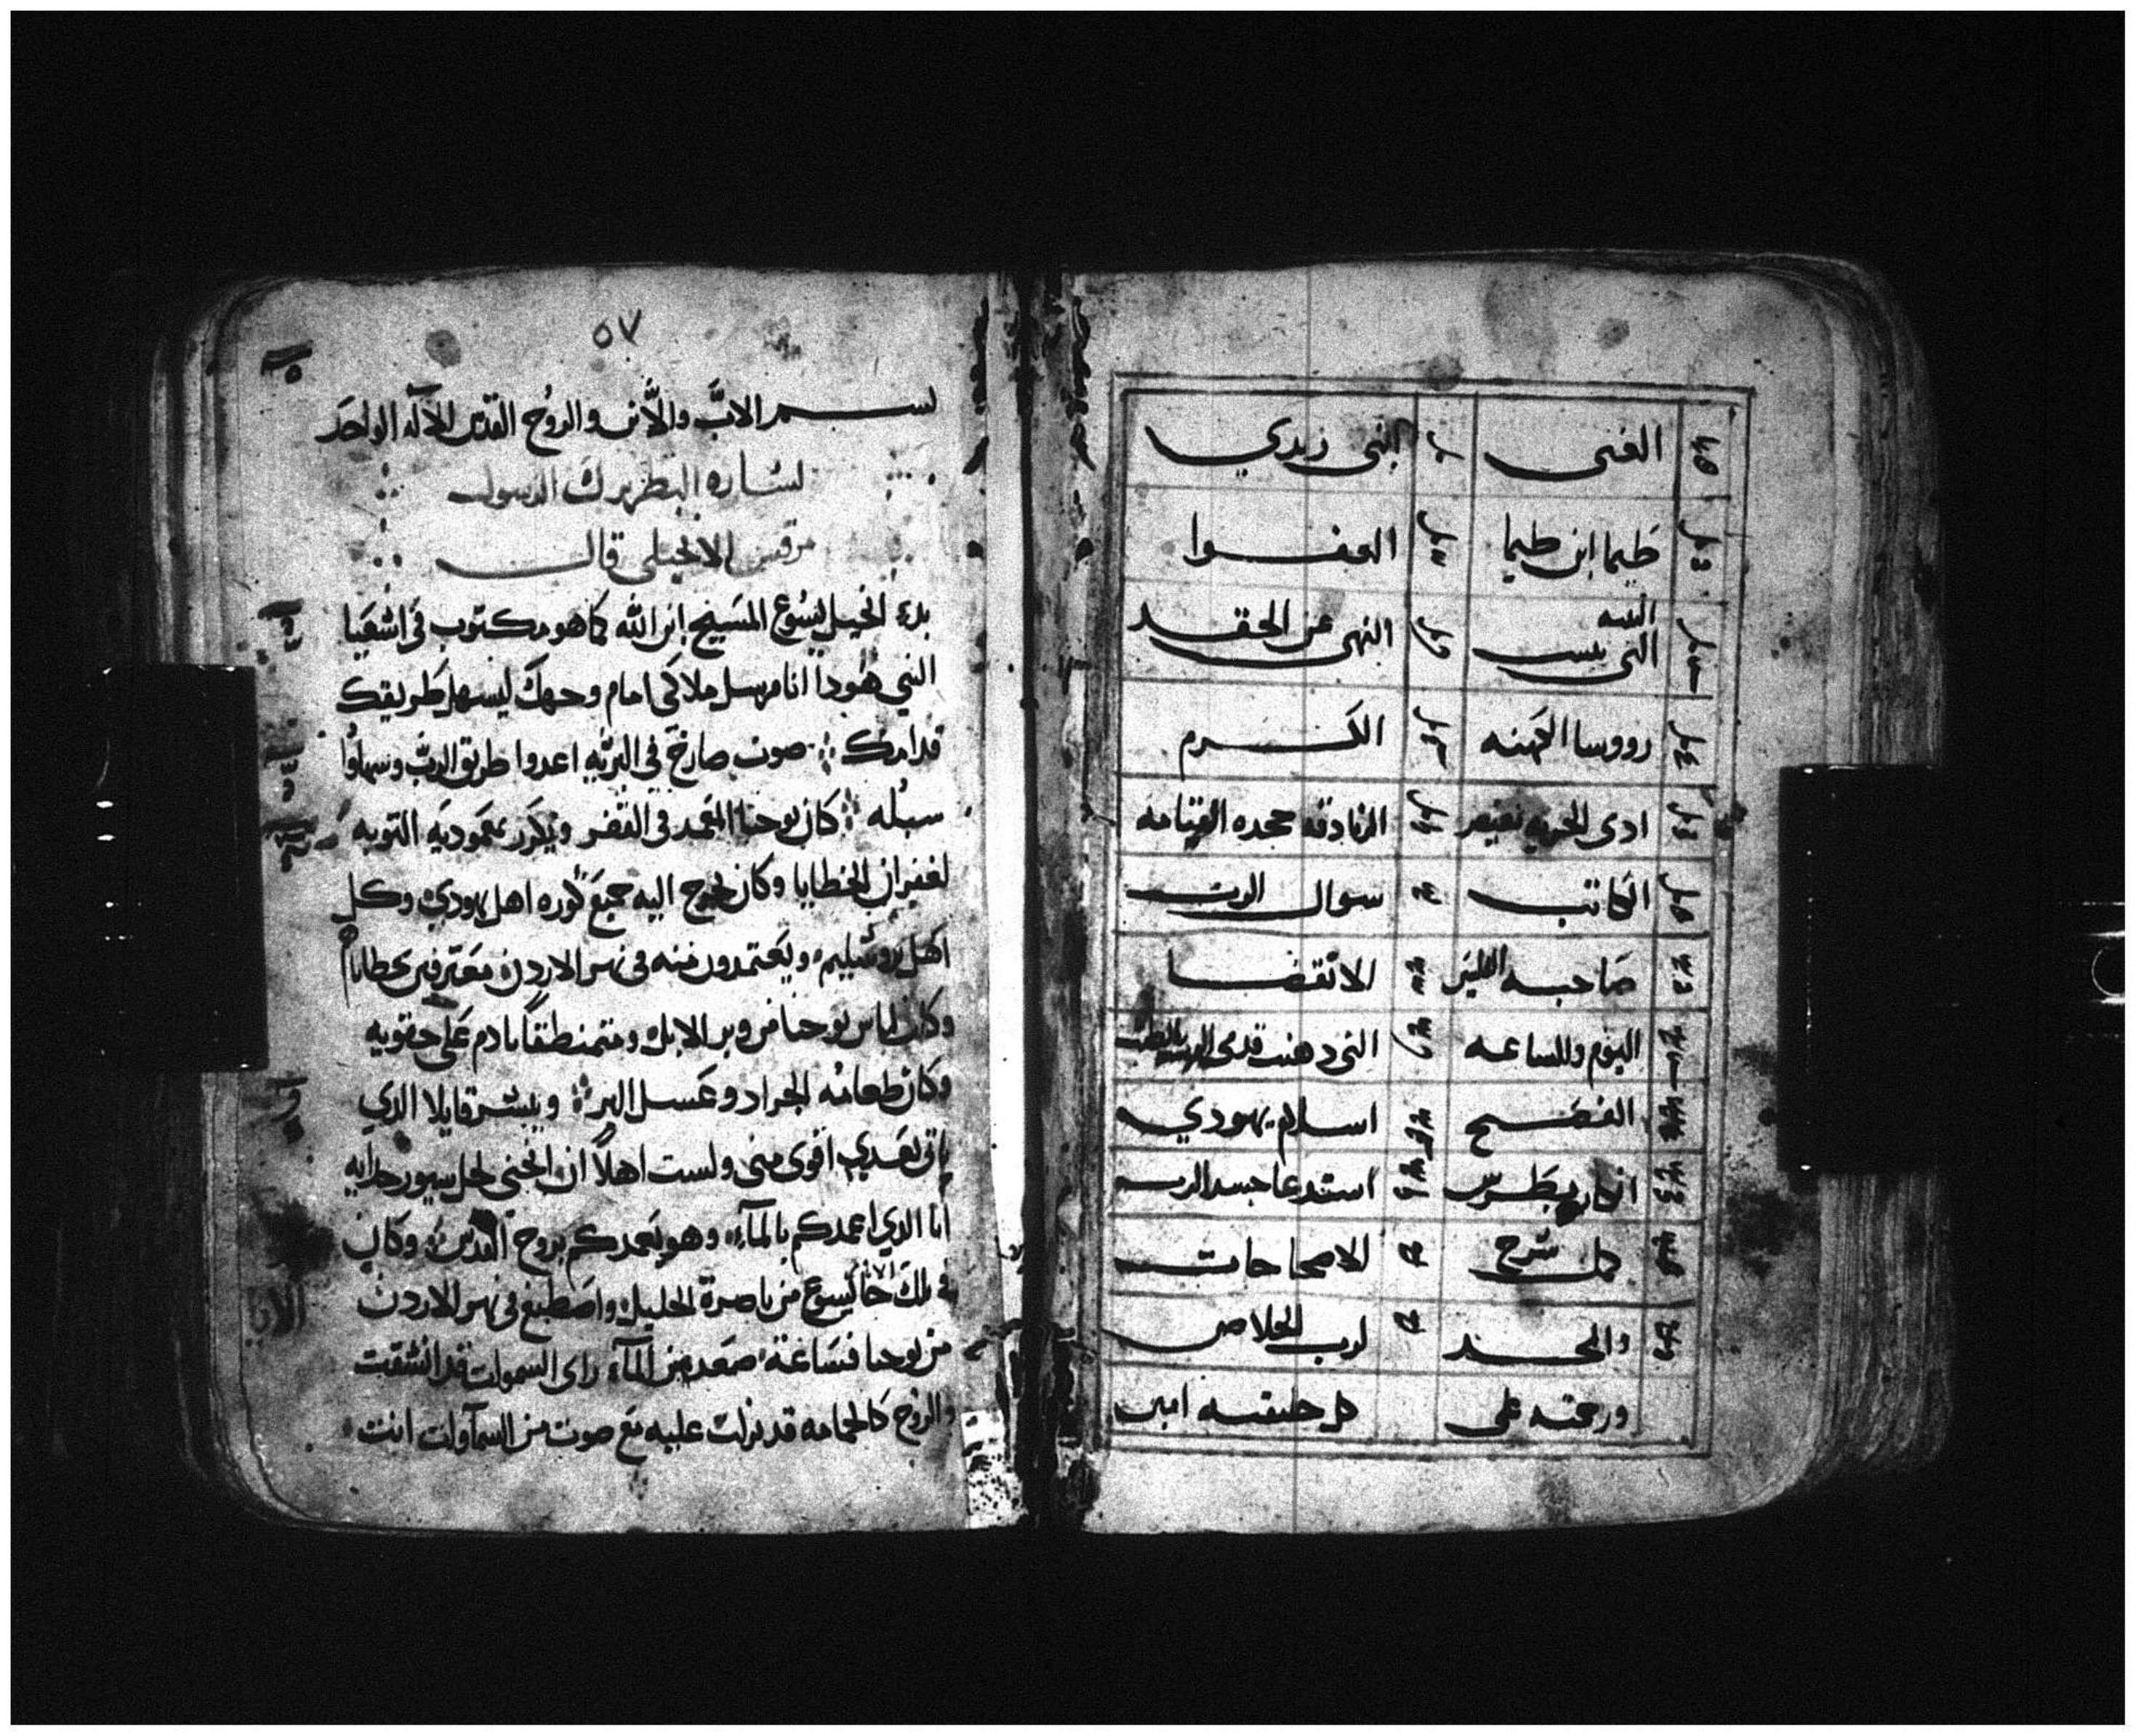 الغنى ابني زبدي
طيما ابن طيما العفوا
التينه التي يبست النهي عن الحقد
رووسا الكهنه الكرم
ادى الجزيه لقيصر الزنادقه جحده القيامه
الكاتب سوال الرب
صاحبه الفلسين الانقضا
اليوم والساعه التي دهنت قدمى الرب بالطيب
الفصح اسلام يهودي
انكار بطرس استدعا جسد الرب
كمل شرح الاصحاحات
والمجد لرب الخلاص
ورحمته على كل خليقته امين
٥٧
بسم الاب والابن والروح القدس الاله الواحد
بشاره البطريرك الرسول
مرقس الانجيلي قال
بدء انجيل ليسوع المسيح ابن الله كما هو مكتوب في اشعيا
النبي هودا انا مرسل ملاكي امام وجهك ليسهل طريقك
قدامك صوت صارخ في البريه اعدوا طريق الرب وسهلوا
سبله كان يوحنا المعمد في القفر ويكرز بمعموديه التوبه
لغفران الخطايا وكان يخرج اليه جميع كوره اهل يهودي وكل
اهل يروشليم ويعتمدون منه في نهر الاردن معترفين بخطاياهم
وكان لباس يوحنا من وبر الابل ومتمنطقا بادم على حقويه
وكان طعامه الجراد وعسل البر ويبشر قايلا الدي
ياتي بعدي اقوى مني ولست اهلا ان انحني لحل سيور حدايه
انا الدي اعمدكم بالمآء وهو يعمدكم بروح القدس وكان
في تلك الايام جا يسوع من ناصرة الجليل واصطبغ في نهر الاردن
من يوحنا فساعة صعد من المآء راى السموات قد انشقت
والروح كالحمامه قد نزلت عليه مع صوت من السمآوات انت